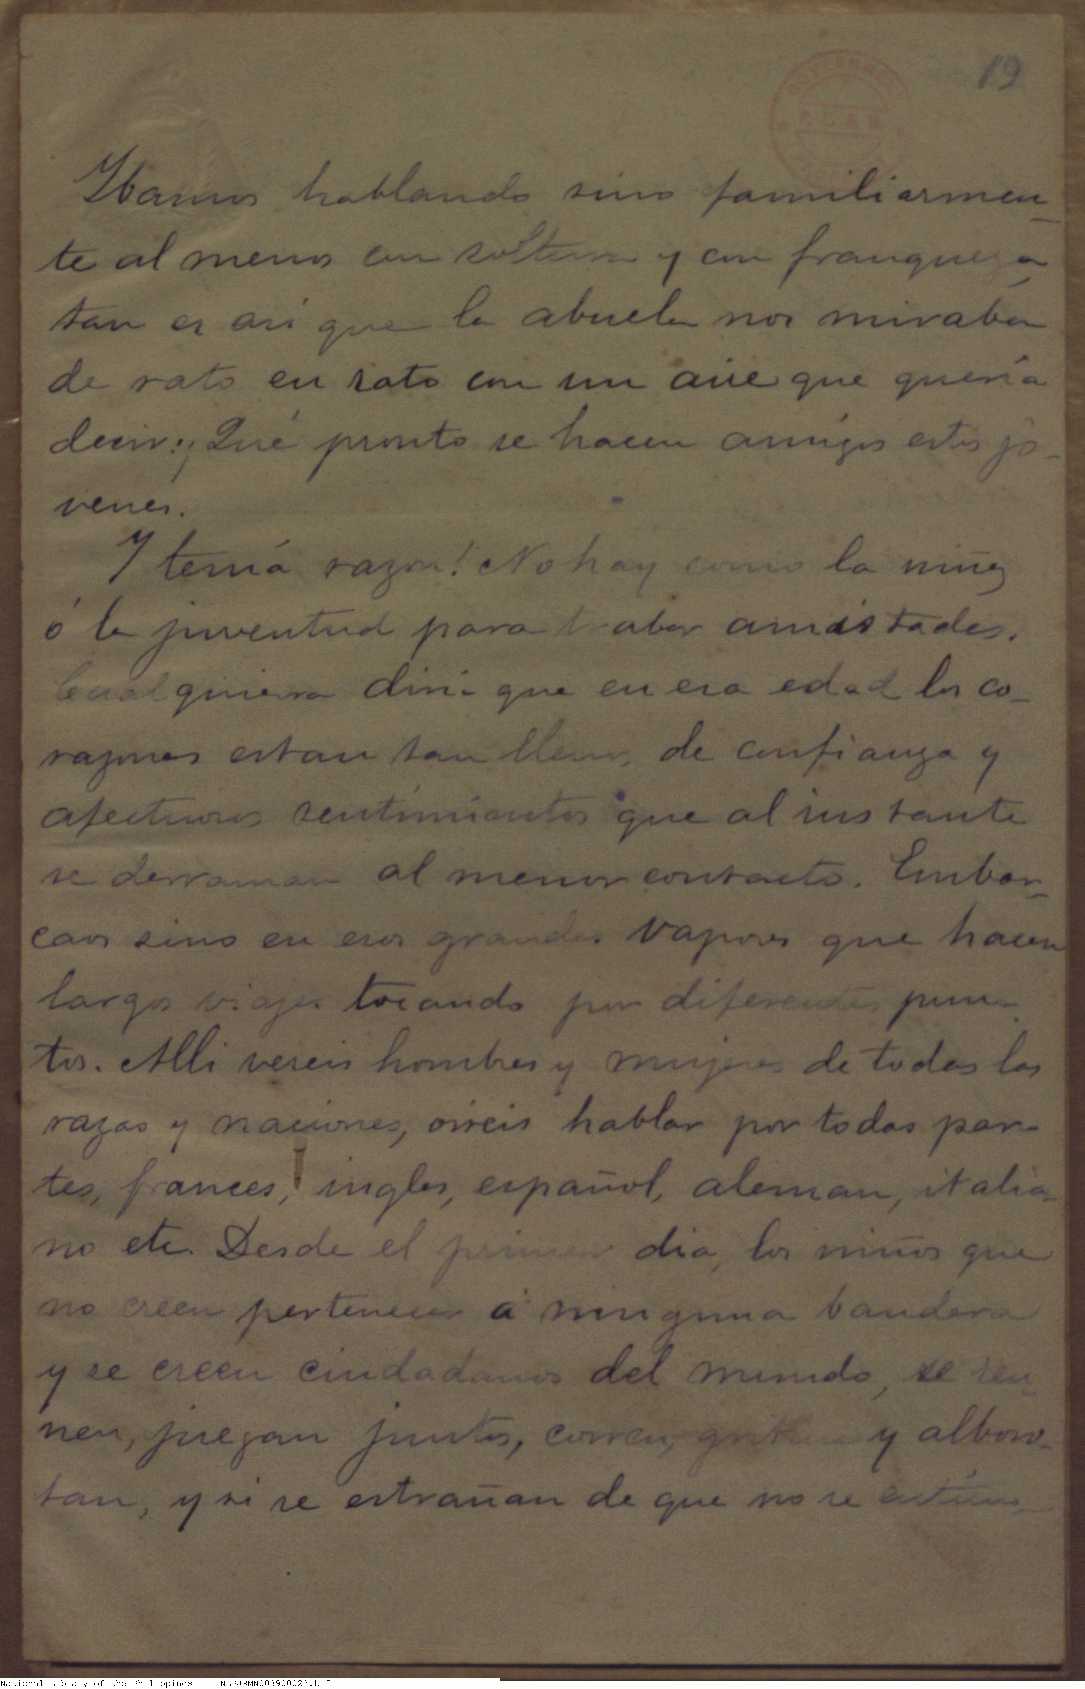 19
Ibamos hablando sino familiarmen-
te al menos con soltura y con franqueza
tan es asi que la abuela nos miraba
de rato en rato con un aire que queria
decir: ¡Qué pronto se hacen amigos estos jo-
venes.
Y tenía razon! No hay como la niñez
ó la juventud para trabar amistades.
Cualquiera diria que en esa edad los co-
razones estan tan llenos de confianza y
afectuosos sentimientos que al instante
se derraman al menor contacto. Embar-
caos sino en esos grandes vapores que hacen
largos viajes tocando por diferentes pun-
tos. Alli vereis hombres y mujeres de todas las
razas y naciones, oireis hablar por todas par-
tes, frances, ingles, español, aleman, italia-
no etc. Desde el primer dia, los niños que
no creen pertenecer á ninguna bandera
y se creen ciudadanos del mundo, se reu-
nen, juegan juntos, corren, gritan y alboro-
tan, y si se estrañan de que no se
National Library of the Philippines